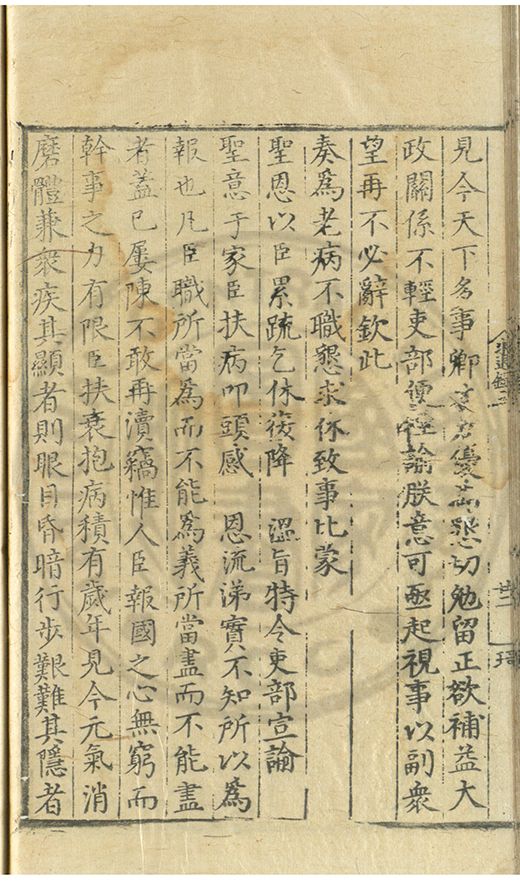 見今天下多事卿憂懇切勉留正欲補益大
政關係不輕吏部便諭朕意可亟起視事以副衆
望再不必辭欽此
奏為老病不職懇求休致事比蒙
聖恩以臣累疏乞休復降 溫旨特令吏部宣諭
聖意于家臣扶病叩頭感 恩流涕實不知所以為
報也凡臣職所當為而不能為義所當盡而不能盡
者蓋已屢陳不敢再瀆竊惟人臣報國之心無窮而
幹事之力有限臣扶衰抱病積有歲年見今元氣消
磨體兼衆疾其顯者則眼目昏暗行步艱難其隱者